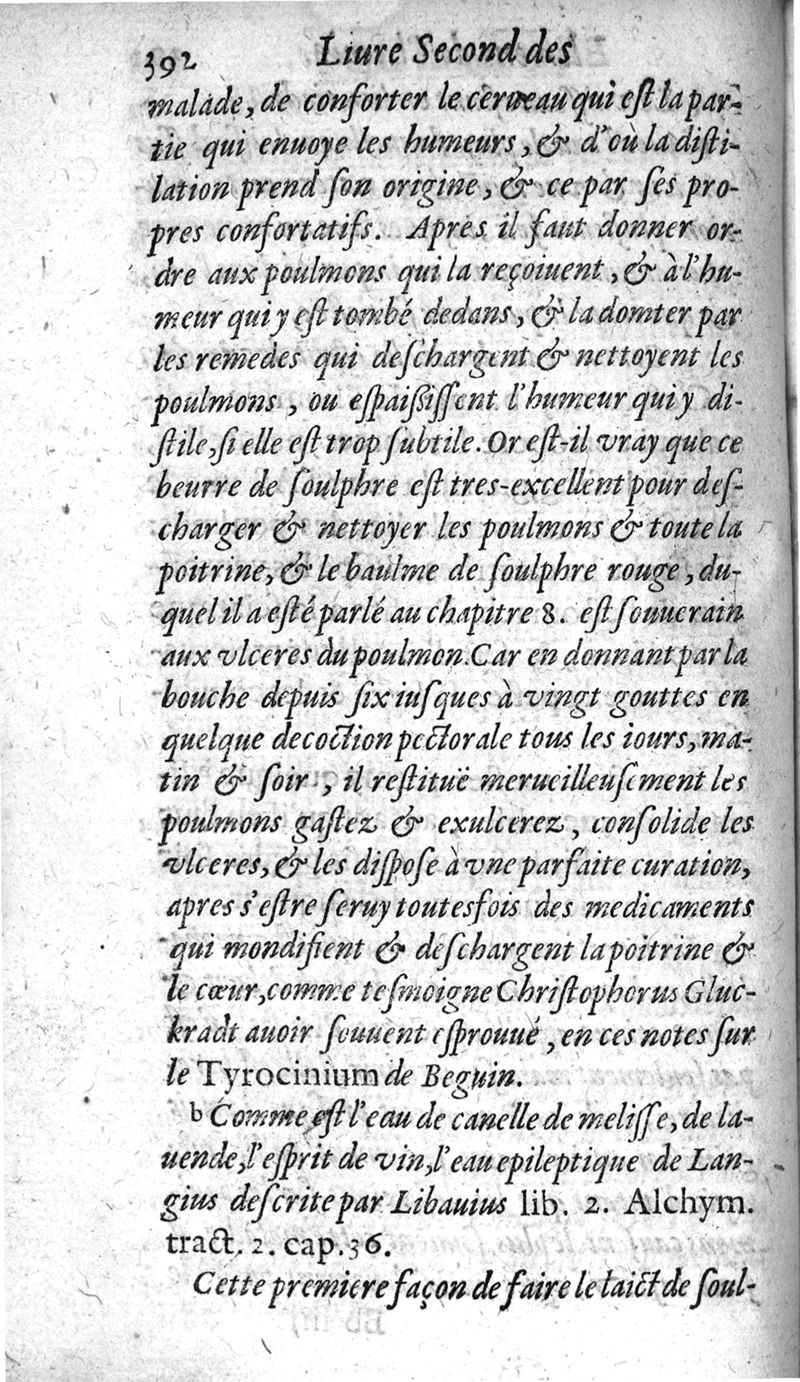 392 Liure Second des
malade, de conforter le cerueau qui eſt la par-
tie qui enuoye les humeurs, & d'où la diſti-
lation prend ſon origine, & ce par ſes pro-
pres confortatifs. Apres il faut donner or-
dre aux poulmons qui la reçoiuent, & à l'hu-
meur qui y eſt tombé dedans, & la domter par
les remedes qui deſchargent & nettoyent les
poulmons, ou eſpaiſſiſſent l'humeur qui y di-
ſtile, ſi elle eſt trop ſubtile. Or eſt-il vray que ce
beurre de ſoulphre eſt tres-excellent pour deſ-
charger & nettoyer les poulmons & toute la
poitrine, & le baulme de ſoulphre rouge, du-
quel il a eſté parlé au chapitre 8. eſt ſouuerain
aux vlceres du poulmon. Car en donnant par la
bouche depuis ſix iuſques à vingt gouttes en
quelque decoction pectorale tous les iours, ma-
tin & ſoir, il reſtituë merueilleuſement les
poulmons gaſtez & exulcerez, conſolide les
vlceres, & les diſpoſe à vne parfaite curation,
apres s'eſtre ſeruy toutesfois des medicaments
qui mondifient & deſchargent la poitrine &
le cœur, comme teſmoigne Chriſtophorus Gluc-
kradt auoir ſouuent eſprouué, en ces notes ſur
le Tyrocinium de Beguin.
b Comme eſt l'eau de canelle de meliſſe, de la-
uende, l'eſprit de vin, l'eau epileptique de Lan-
gius deſcrite par Libauius lib. 2. Alchym.
tract. 2. cap. 36.
Cette premiere façon de faire le laict de ſoul-